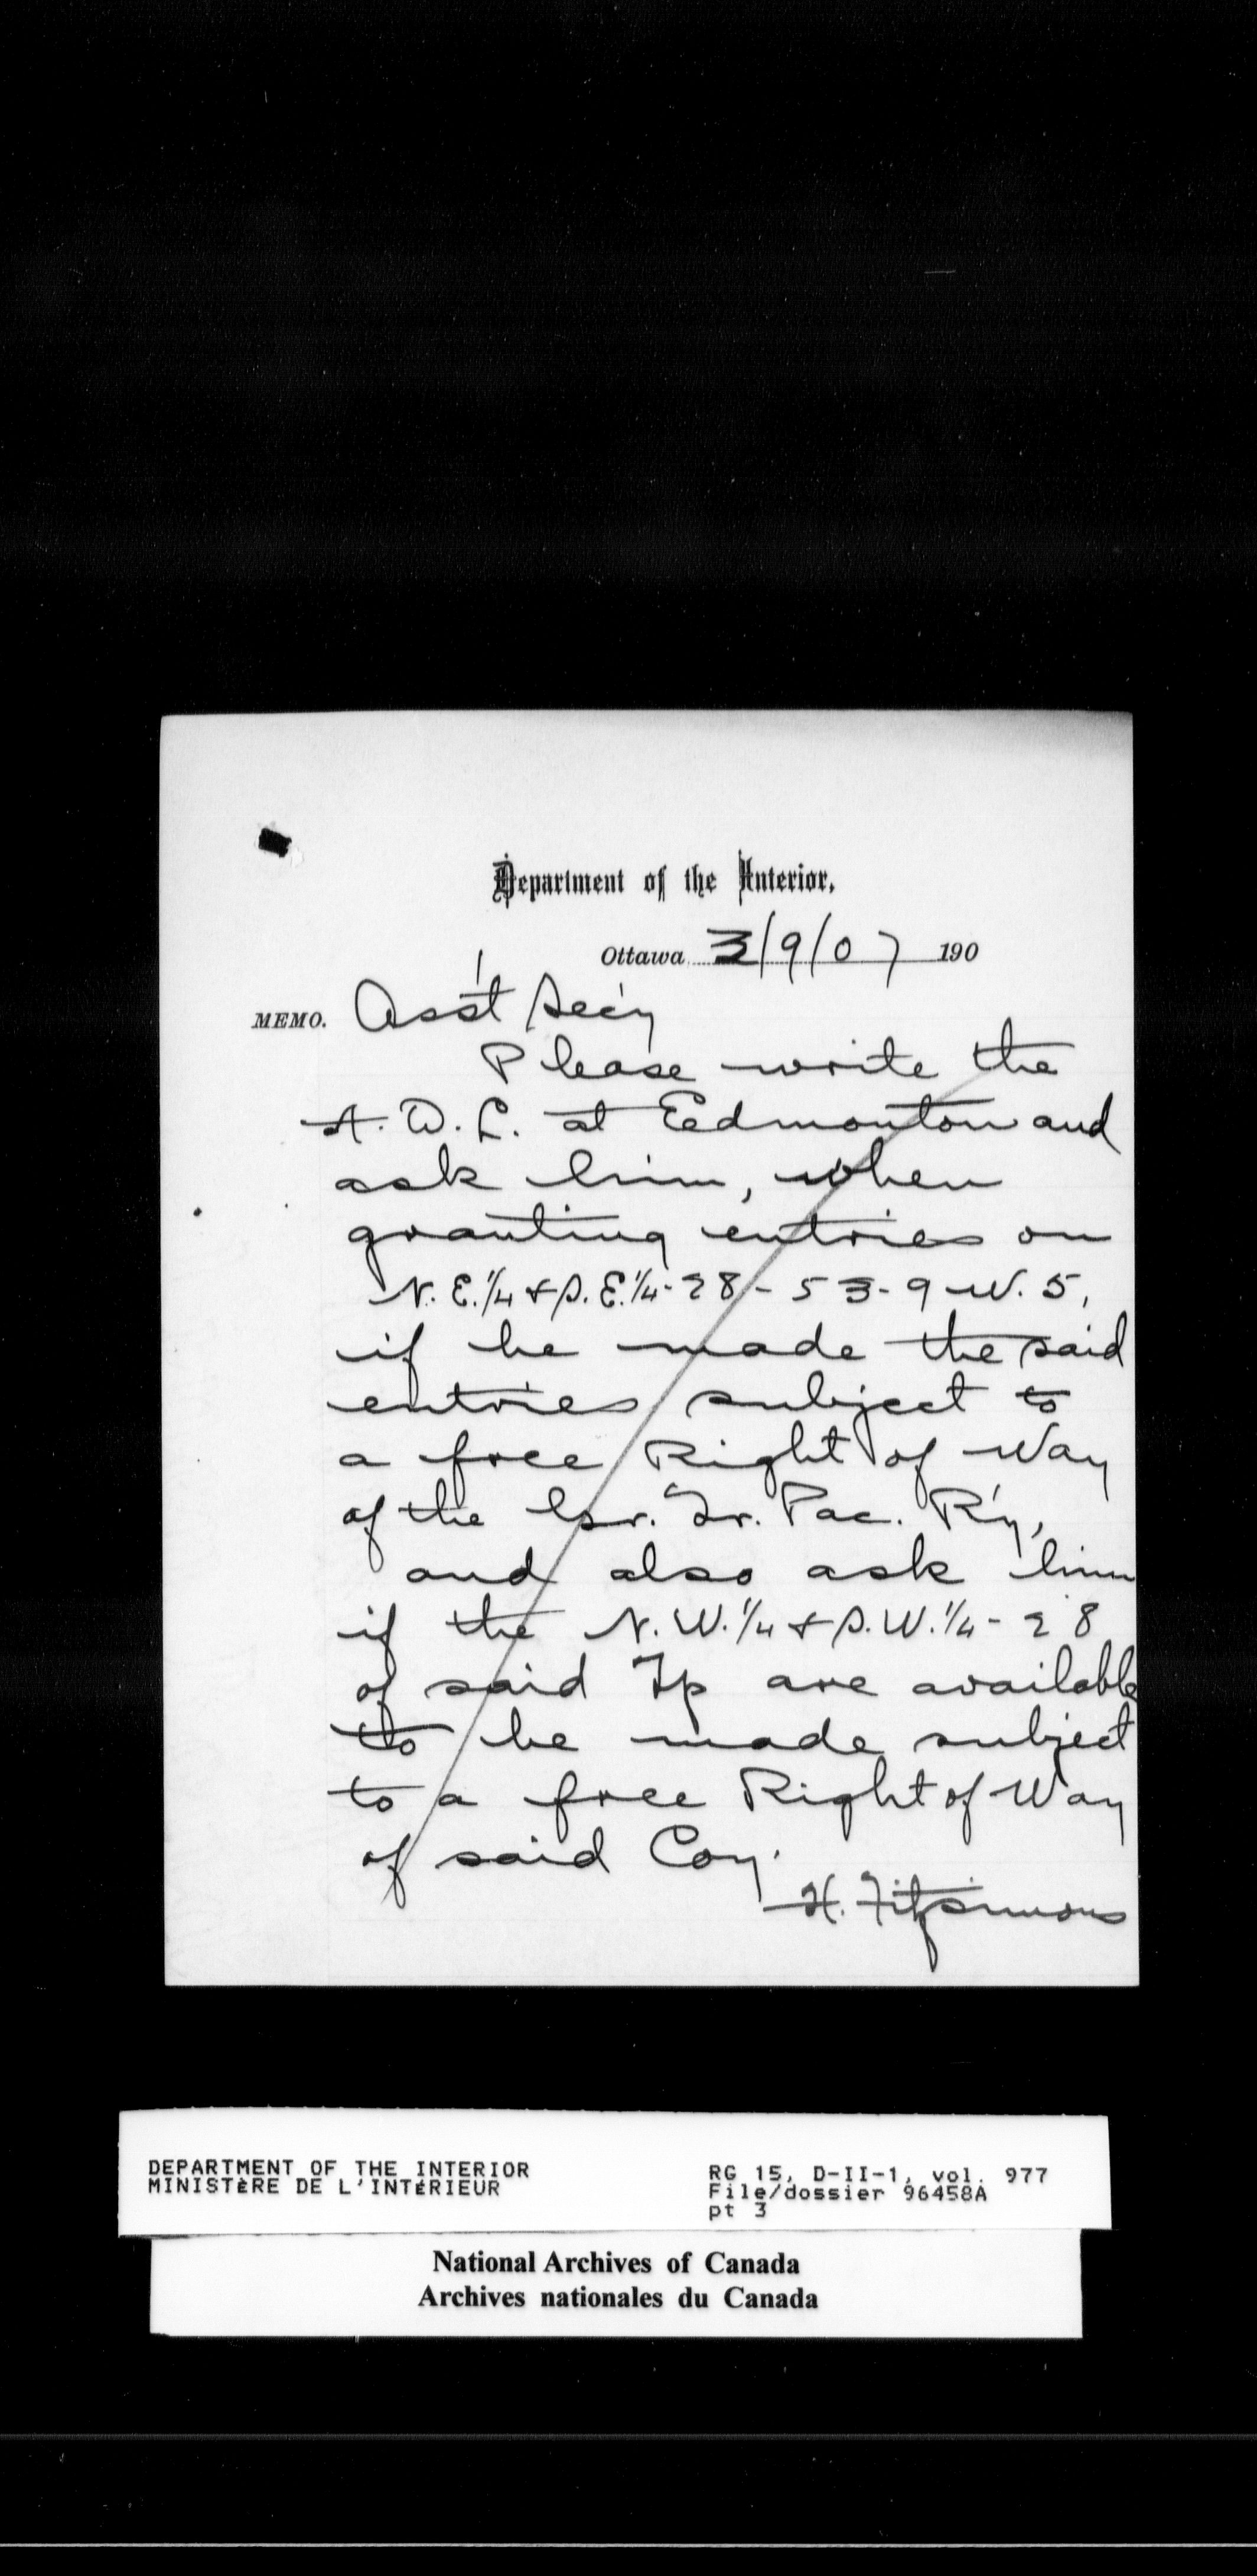 Department of the Interior.
Ottawa 3/9/07 190
MEMO. Ass't Sec'y
Please write the
A. D. L. at Edmonton and
ask him, when
granting entries on
N.E.1/4 & S.E.1/4-28-53-9-W.5,
if he made the said
entries subject to
a free Right of Way
of the Gr. Tr. Pac. R'y,
and also ask him
if the N.W.1/4 & S.W.1/4-28
of said Tp are available
to be made subject
to a free Right of Way
of said Coy.
H. Fitzsimmons
DEPARTMENT OF THE INTERIOR RG 15, D-II-1, vol. 977
MINISTÈRE DE L'INTÉRIEUR File/dossier 96458A
pt 3
National Archives of Canada
Archives nationales du Canada